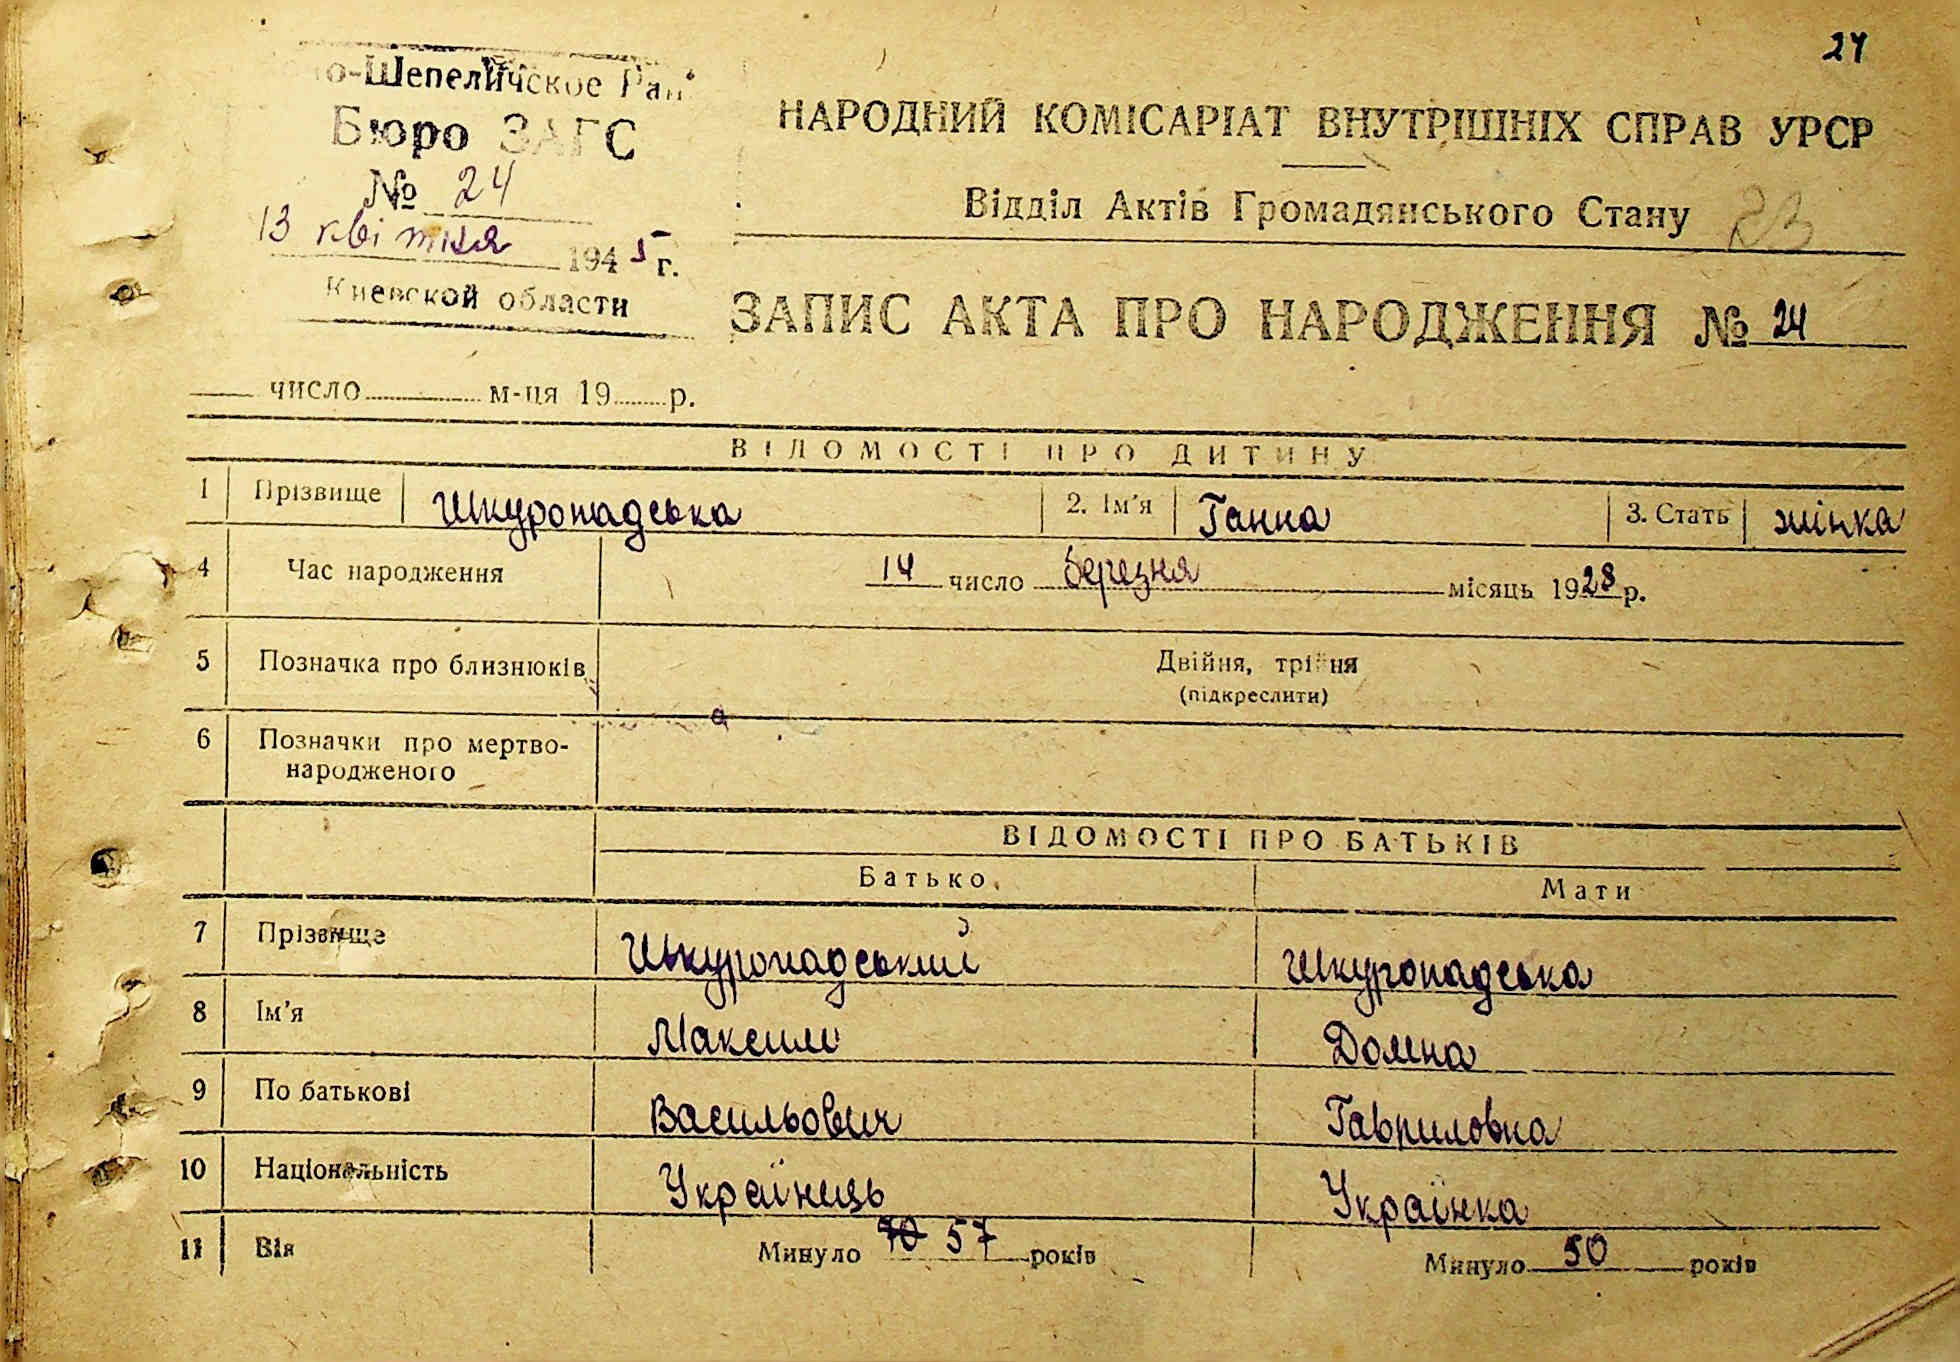 24
о-Шепеличское Рай
Бюро ЗАГС
№ 24
13 квітня 1945 г.
Киевской области
НАРОДНИЙ КОМІСАРІАТ ВНУТРІШНІХ СПРАВ УРСР
Відділ Актів Громадянського Стану 23
ЗАПИС АКТА ПРО НАРОДЖЕННЯ № 24
число м-ця 19 р.
ВІДОМОСТІ ПРО ДИТИНУ
1 Прізвище Шкуропадська 2. Ім'я Ганна 3. Стать жінка
4 Час народження 14 число березня місяць 1928 р.
5 Позначка про близнюків Двійня, трійня
(підкреслити)
6 Позначки про мертво-
народженого
ВІДОМОСТІ ПРО БАТЬКІВ
Батько Мати
7 Прізвище Шкуропадський Шкуропадська
8 Ім'я Максим Домна
9 По батькові Васильович Гавриловна
10 Національність Українець Українка
11 Вік Минуло 70 57 років Минуло 50 років